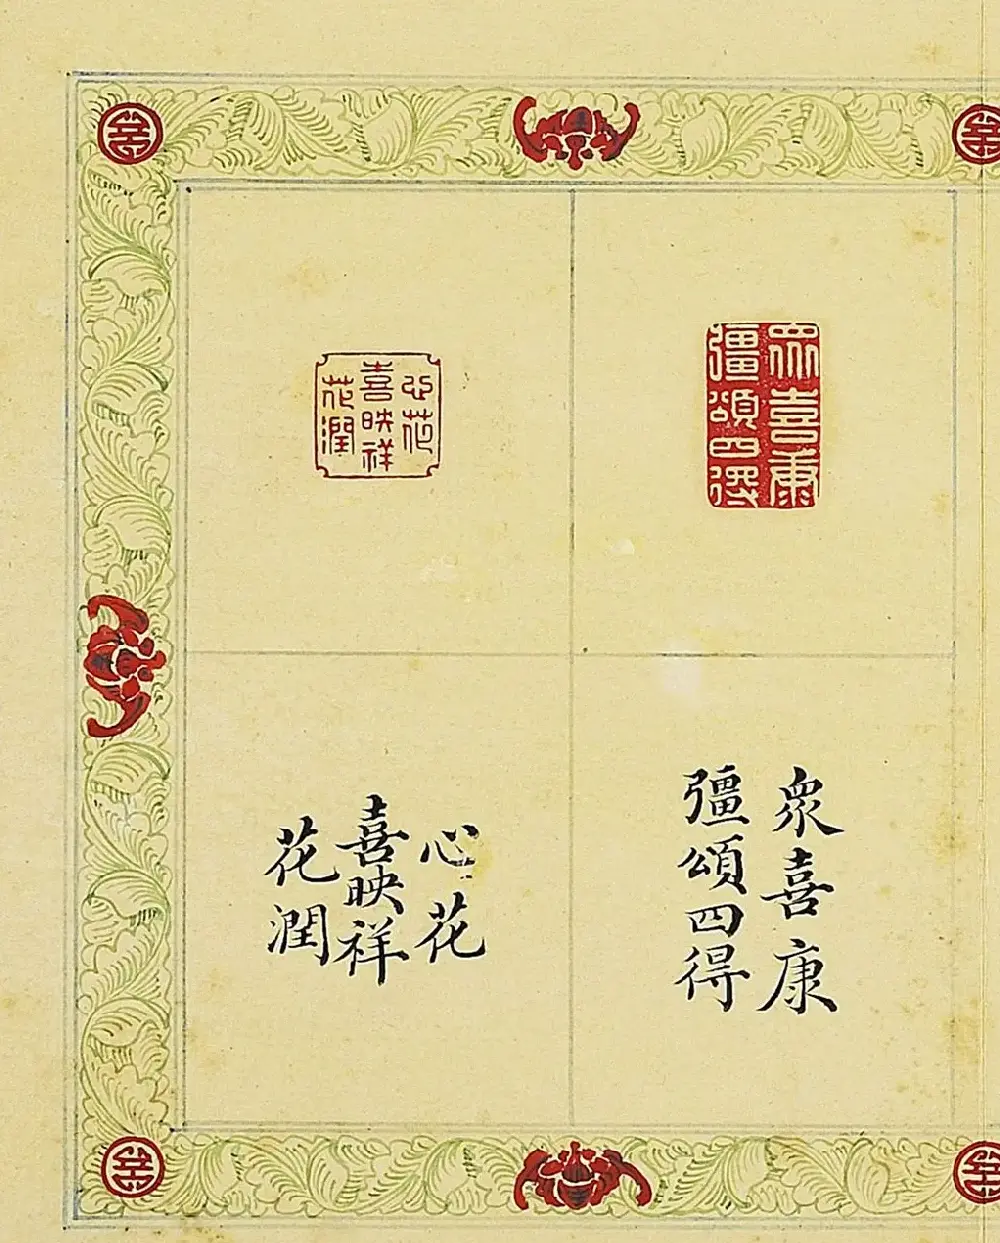 眾喜康
彊頌四得
心花
喜映祥
花潤
衆喜康
彊頌四得
心花
喜映祥
花潤